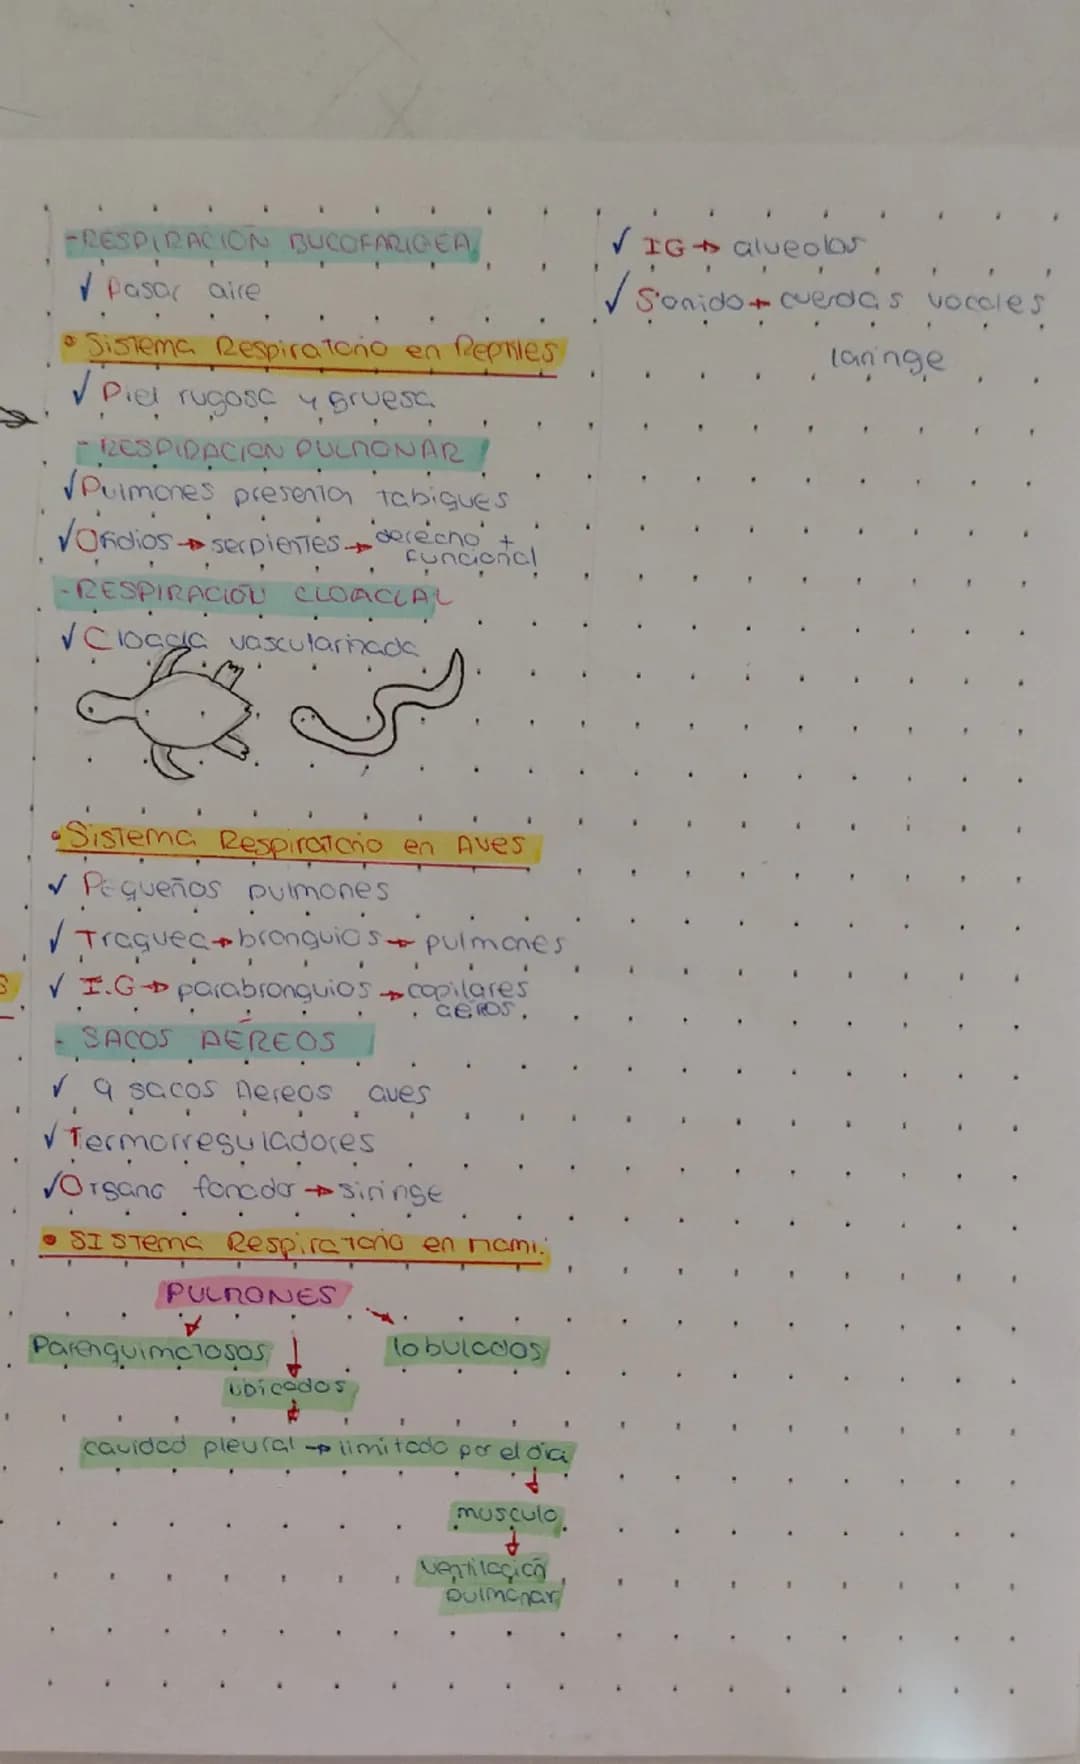 -RESPIRACIÓN BUCOFARIGEA
✓ Pasar aire
• Sistema Respiratorio en Reptiles
✓ Piel rugosa y gruesa
- RESPIRACION PULMONAR
✓ Pulmones presentan tabiques
✓ Ofidios → serpientes → derecho +
funcional
-RESPIRACIÓN CLOACLAL
✓ Cloaca vascularizada
• Sistema Respiratorio en Aves
✓ Pequeños pulmones
✓ Traquea → bronquios → pulmones
✓ I.G → parabronquios → capilares
aéros.
- SACOS AÉREOS
✓ 9 sacos Aereos aves
✓ Termorreguladores
✓ Organo fonador → siringe
• SISTema Respiratorio en mami.
PULMONES
Parenquimatosos
lobulados
ubicados
cavidad pleural → limitado por el dia
musculo
ventilación
pulmonar
✓ IG → alveolos
✓ Sonido → cuerdas vocales
laringe